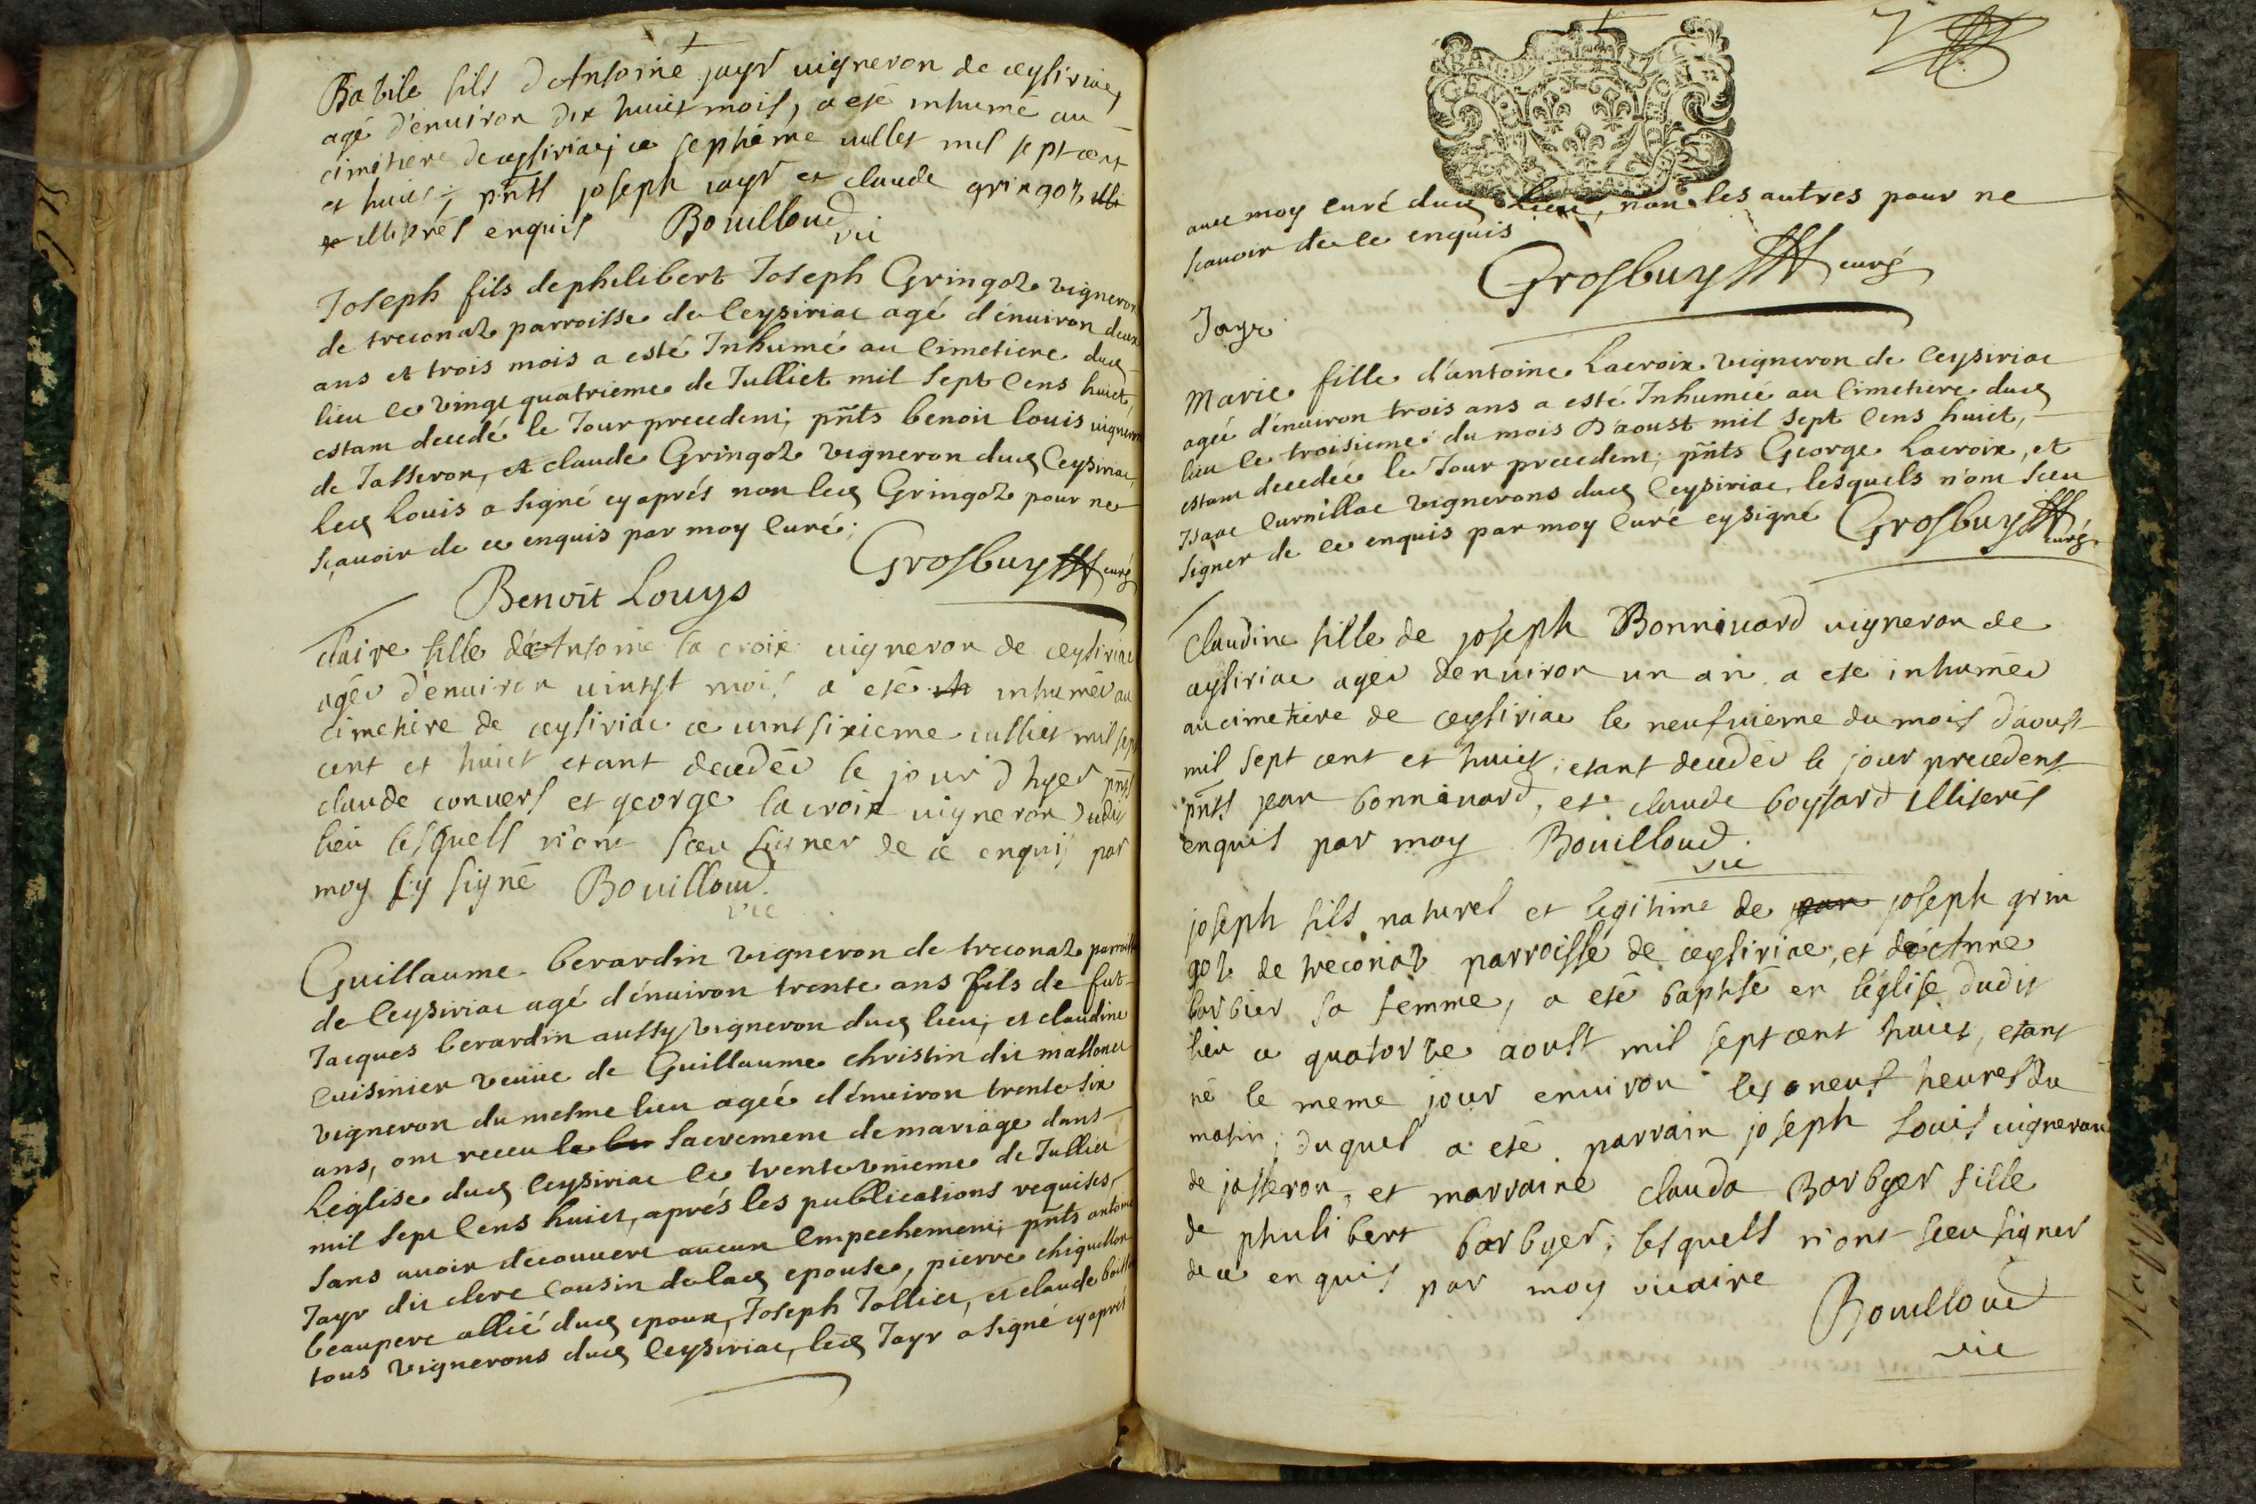 Babile fils d'Antoine jayr vigneron de ceysiriac,
agé d'environ dix huict mois, a esté inhumé au
cimetiere de ceysiriac, ce septiéme iullet mil sept cent
et huict; pñts joseph jayr et claude gringoz
illiterés enquis Bouilloud
vic
Joseph fils de philibert Joseph Gringoz vigneron
de treconaz parroisse de Ceysiriac agé d'énuiron deux
ans et trois mois a esté Inhumé au Cimetiere dud
lieu le vingt quatrieme de Julliet mil sept Cens huict,
estant decedé le Jour precedent; pñts benoit louis vigneron
de Jasseron, et claude Gringoz vigneron dud Ceysiriac,
led Louis a signé cy aprés non led Gringoz pour ne
sçauoir de ce enquis par moy Curé;
Grosbuy curé
Benoit Louys
Claire fille d'Antoine la croix vigneron de ceysiriac
agée d'enuiron uintst mois a esté inhumée au
cimetiere de ceysiriac ce uint sixieme iulliet mil sept
cent et huict etant decedée le jour d'hyer pñts
claude conuers et george la croix uigneron dudit
lieu lesquels n'ont sceu signer de ce enquis par
moy sy signé Bouilloud
vic
Guillaume berardin vigneron de treconaz parroisse
de Ceysiriac agé d'énuiron trente ans fils de fut
Jacques berardin aussy vigneron dud lieu; et claudine
Cuisinier veuue de Guillaume christin dit massonet
vigneron du mesme lieu agée d'énuiron trente six
ans, ont receu le sacrement de mariage dans
Léglise dud Ceysiriac le trente vnieme de Julliet
mil sept Cens huict, aprés les publications requises,
sans auoir decouuert aucun Empechement; pñts antoine
Jayr dit clerc Cousin de lad epouse, pierre chiquellon
beaupere allié dud epoux, Joseph Tollier, et claude
tous vignerons dud Ceysiriac, led Jayr a signé cy aprés
auec moy Curé dud lieu, non les autres pour ne
scauoir de ce enquis
Grosbuy curé
Jayr
Marie fille d'antoine Lacroix vigneron de Ceysiriac
ageé d'énuiron trois ans a esté Inhumée au Cimetiere dud
lieu le troisieme du mois D'aoust mil sept Cens huict,
estant decedée le Jour precedent; pñts George Lacroix, et
Isaac Curnillac vignerons dud Ceysiriac, lesquels n'ont sceu
signer de ce enquis par moy Curé cysigné Grosbuy curé
Claudine fille de joseph Bonniuard uigneron de
ceysiriac ageé denuiron un an a esté inhumée
au cimetiere de ceysiriac le neufuieme du mois d'aoust
mil sept cent et huict, etant decedée le jour precedent
pñts jean bonniuard, et claude boyssard illiterés
enquis par moy Bouilloud
vic
joseph fils naturel et legitime de joseph grin
goz de treconaz parroisse de ceysiriac, et d'Anne
barbier sa femme, a esté baptisé en l'église dudit
lieu ce quatorze aoust mil sept cent huict, etant
né le meme jour enuiron les neuf heures du
matin; duquel a esté parrain joseph Louis uigneron
de jasseron, et marraine clauda Barbyer fille
de philibert barbyer; lesquels n'ont sceu signer
de ce enquis par moy uicaire
Bouilloud
vic